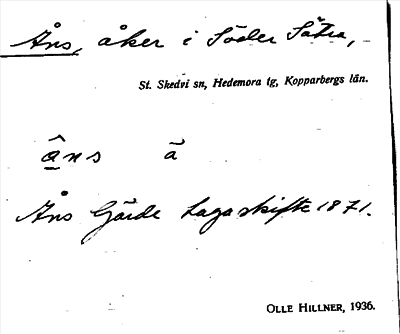 Åns, åker i Söder Sätra,
St. Skedvi sn, Hedemora tg, Kopparbergs län.
â̱ns ā
Åns Gärde Lagaskifte 1871.
OLLE HILLNER, 1936.